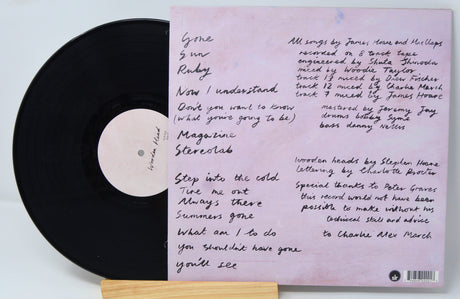 Wooden Heads
Gone
Sun
Ruby
Now I understand
Don't you want to know
(what you're going to be)
Magazine
Stereolab
Step into the cold
Time me out
Always there
Summers gone
What am I to do
You shouldn't have gone
you'll see
All songs by James Hoare and
recorded on 8 track tape
engineered by
mixed by Woodie Taylor
track 13 mixed by
track 12 mixed by Charlie March
track 7 mixed by James Hoare
mastered by Jeremy Jay
drums bobby Syme
bass danny
wooden heads by Stephen Hoare
lettering by Charlotte
Special thanks to Peter Graves
this record would not have been
possible to make without his
technical skill and advice
to Charlie Alex March